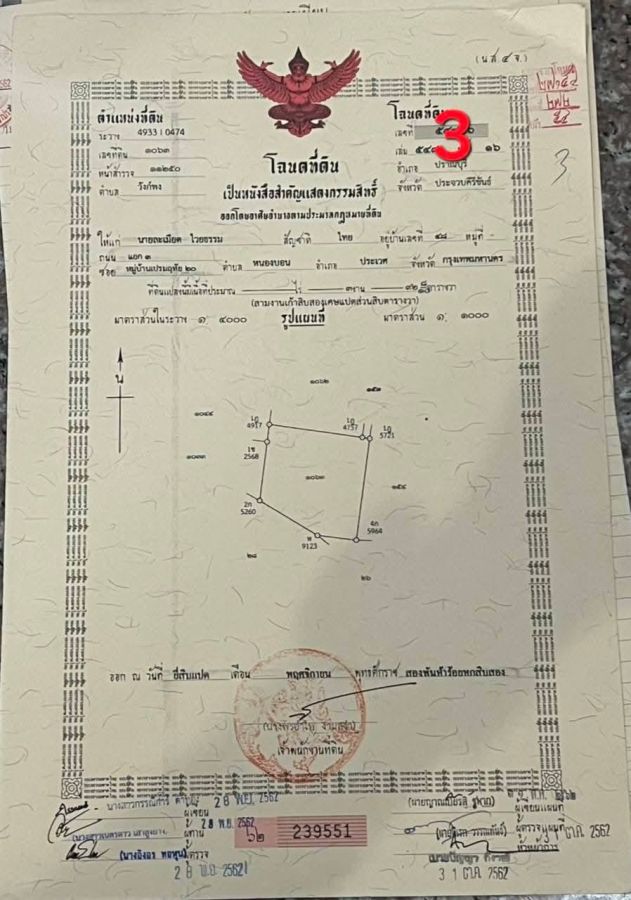 (น.ส. ๔ จ.)
ตำแหน่งที่ดิน
ระวาง 4933 I 0474
เลขที่ดิน ๑๐๖๓
หน้าสำรวจ ๑๑๒๕๐
ตำบล วังก์พง
โฉนดที่ดิน
เลขที่
3
เล่ม ๑๖
อำเภอ ปราณบุรี
จังหวัด ประจวบคีรีขันธ์
3
โฉนดที่ดิน
เป็นหนังสือสำคัญแสดงกรรมสิทธิ์
ออกโดยอาศัยอำนาจตามประมวลกฎหมายที่ดิน
ให้แก่ นายละเมียด ไวยธรรม สัญชาติ ไทย อยู่บ้านเลขที่ ๔๘ หมู่ที่ -
ถนน แยก ๓
ซอย หมู่บ้านเปรมฤทัย ๒๐ ตำบล หนองบอน อำเภอ ประเวศ จังหวัด กรุงเทพมหานคร
ที่ดินแปลงนี้มีเนื้อที่ประมาณ - ไร่ ๓ งาน ๙๒ ตารางวา
(สามงานเก้าสิบสองเศษแปดส่วนสิบตารางวา)
มาตราส่วนในระวาง ๑: ๔๐๐๐ รูปแผนที่ มาตราส่วน ๑: ๑๐๐๐
น
๑๐๖๒
๑๕๓
๑๐๔๔
1ฎ 4917
1ฎ 4757
1ฎ 5721
1ช 2568
๑๐๓๓
๑๐๖๓
๑๕๔
2ก 5260
4ก 5964
ห 9123
๒๘
๒๖
ออก ณ วันที่ ยี่สิบแปด เดือน พฤศจิกายน พุทธศักราช สองพันห้าร้อยหกสิบสอง
เจ้าพนักงานที่ดิน
28 พ.ย. 2562
ผู้เขียน
28 พ.ย. 2562
ผู้ทาน
ผู้ตรวจ
28 พ.ย. 2562
๖๒ 239551
ผู้เขียนแผนที่
ผู้ตรวจแผนที่ ต.ค. 2562
หัวหน้าการ
31 ต.ค. 2562